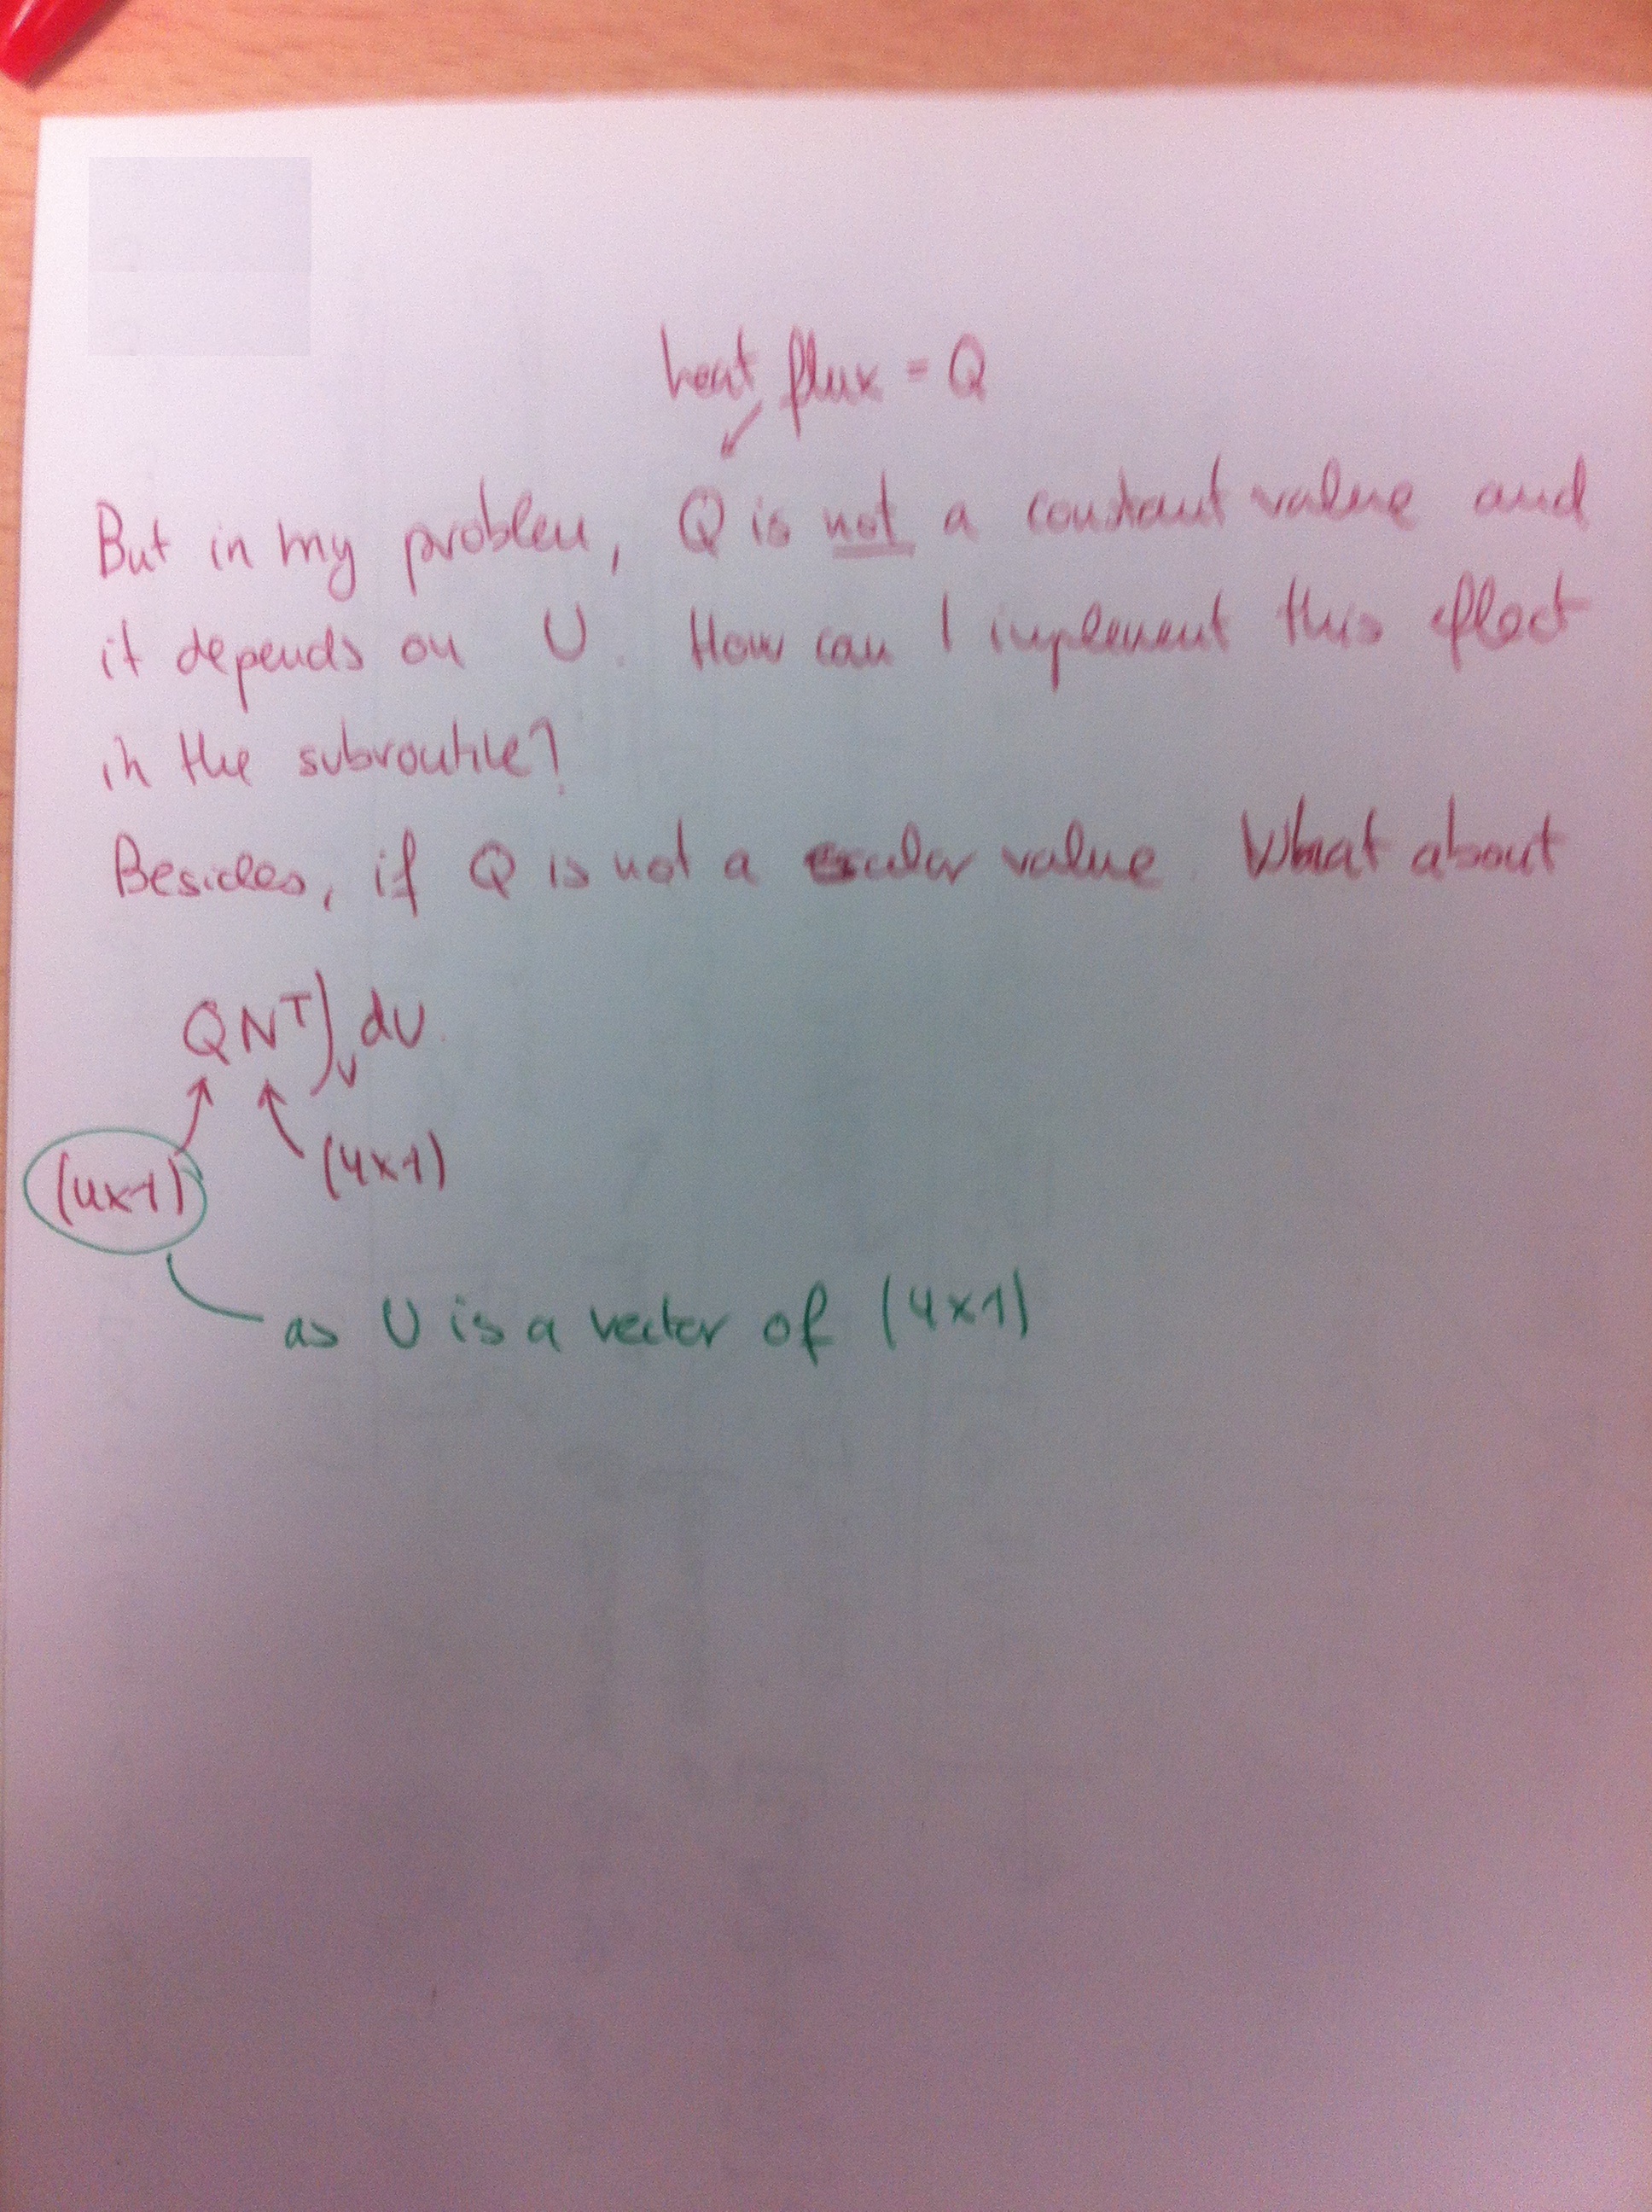 heat flux = Q
But in my problem, Q is not a constant value and
it depends on U. How can I implement this effect
in the subroutine?
Besides, if Q is not a escalar value. What about
QNT)v dU.
(4x1) (4x1)
as U is a vector of (4x1)